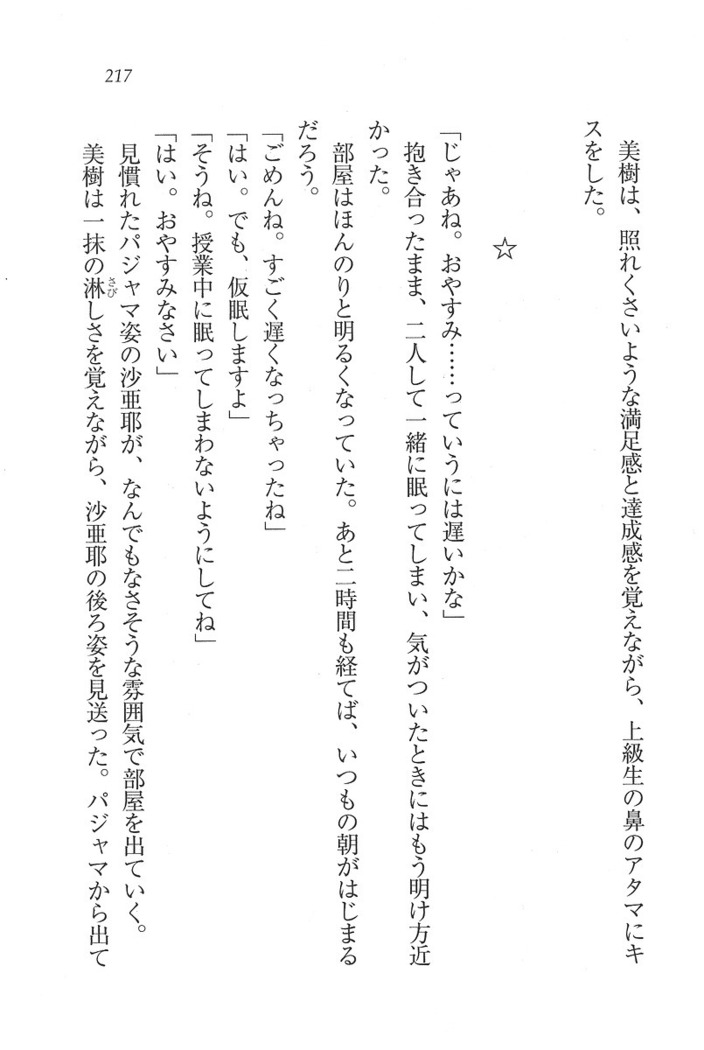 217
美樹は、照れくさいような満足感と達成感を覚えながら、上級生の鼻のアタマにキ
スをした。
☆
「じゃあね。おやすみ……っていうには遅いかな」
抱き合ったまま、二人して一緒に眠ってしまい、気がついたときにはもう明け方近
かった。
部屋はほんのりと明るくなっていた。あと二時間も経てば、いつもの朝がはじまる
だろう。
「ごめんね。すごく遅くなっちゃったね」
「はい。でも、仮眠しますよ」
「そうね。授業中に眠ってしまわないようにしてね」
「はい。おやすみなさい」
見慣れたパジャマ姿の沙亜耶が、なんでもなさそうな雰囲気で部屋を出ていく。
美樹は一抹の淋しさを覚えながら、沙亜耶の後ろ姿を見送った。パジャマから出て
さび